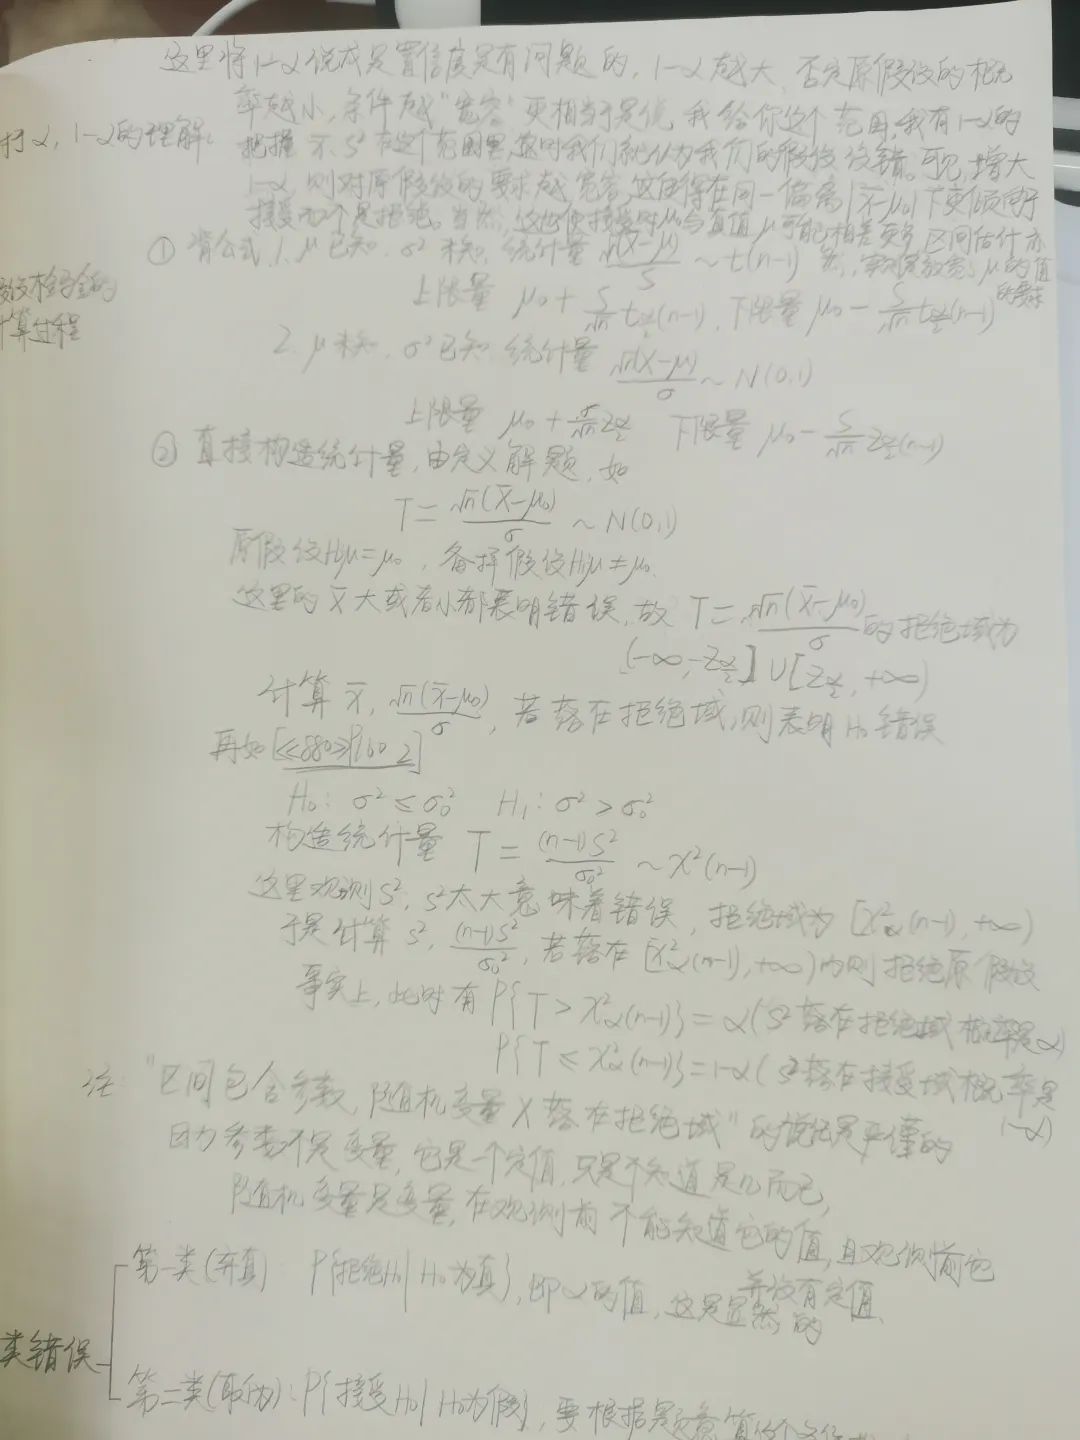 这里将1-α说成是置信度是有问题的, 1-α越大, 否定原假设的概
对α, 1-α的理解:
率越小, 条件越"宽容" 更相当于是说, 我给你这个范围, 我有1-α的
把握 x̄, S² 在这个范围里, 这时我们就认为我们的假设没错。可见, 增大
1-α, 则对原假设的要求越宽容, 这使得在同一偏离|x̄-μ₀|下更倾向于
接受而不是拒绝。当然, 这也使接受时μ₀与真值μ可能相差更多, 区间估计亦
假设检验的
计算过程
① 背公式 1. μ已知, σ²未知, 统计量 √n(X̄-μ)/S ~ t(n-1) 然, 实则是放宽对μ的值的要求
上限量 μ₀ + S/√n t_{α/2}(n-1), 下限量 μ₀ - S/√n t_{α/2}(n-1)
2. μ未知, σ²已知, 统计量 √n(X̄-μ)/σ ~ N(0,1)
上限量 μ₀ + σ/√n Z_{α/2} 下限量 μ₀ - S/√n Z_{α/2}(n-1)
② 直接构造统计量, 由定义解题, 如
T = √n(X̄-μ₀)/σ ~ N(0,1)
原假设H₀μ=μ₀, 备择假设H₁μ≠μ₀.
这里的 x̄ 大或者小都表明错误, 故 T = √n(x̄-μ₀)/σ 的拒绝域为
(-∞, -Z_{α/2}] ∪ [Z_{α/2}, +∞)
计算 x̄, √n(x̄-μ₀)/σ, 若落在拒绝域, 则表明 H₀ 错误
再如[≪880≫P160 2]
H₀: σ² ≤ σ₀² H₁: σ² > σ₀²
构造统计量 T = (n-1)S²/σ₀² ~ χ²(n-1)
这里观测S², S²太大意味着错误, 拒绝域为 [χ²_α(n-1), +∞)
于是计算 S², (n-1)S²/σ₀², 若落在 [χ²_α(n-1), +∞) 内则拒绝原假设
事实上, 此时有 P{T > χ²_α(n-1)} = α (S²落在拒绝域概率是α)
P{T ≤ χ²_α(n-1)} = 1-α (S²落在接受域概率是
1-α)
注: "区间包含参数, 随机变量X落在拒绝域"的说法是严谨的
因为参数不是变量, 它是一个定值, 只是不知道是几而已,
随机变量是变量, 在观测前不能知道它的值, 且观测前它
并没有定值.
第一类(弃真): P{拒绝H₀|H₀为真}, 即α的值, 这是显然的
类错误
第二类(取伪): P{接受H₀|H₀为假}, 要根据题意算